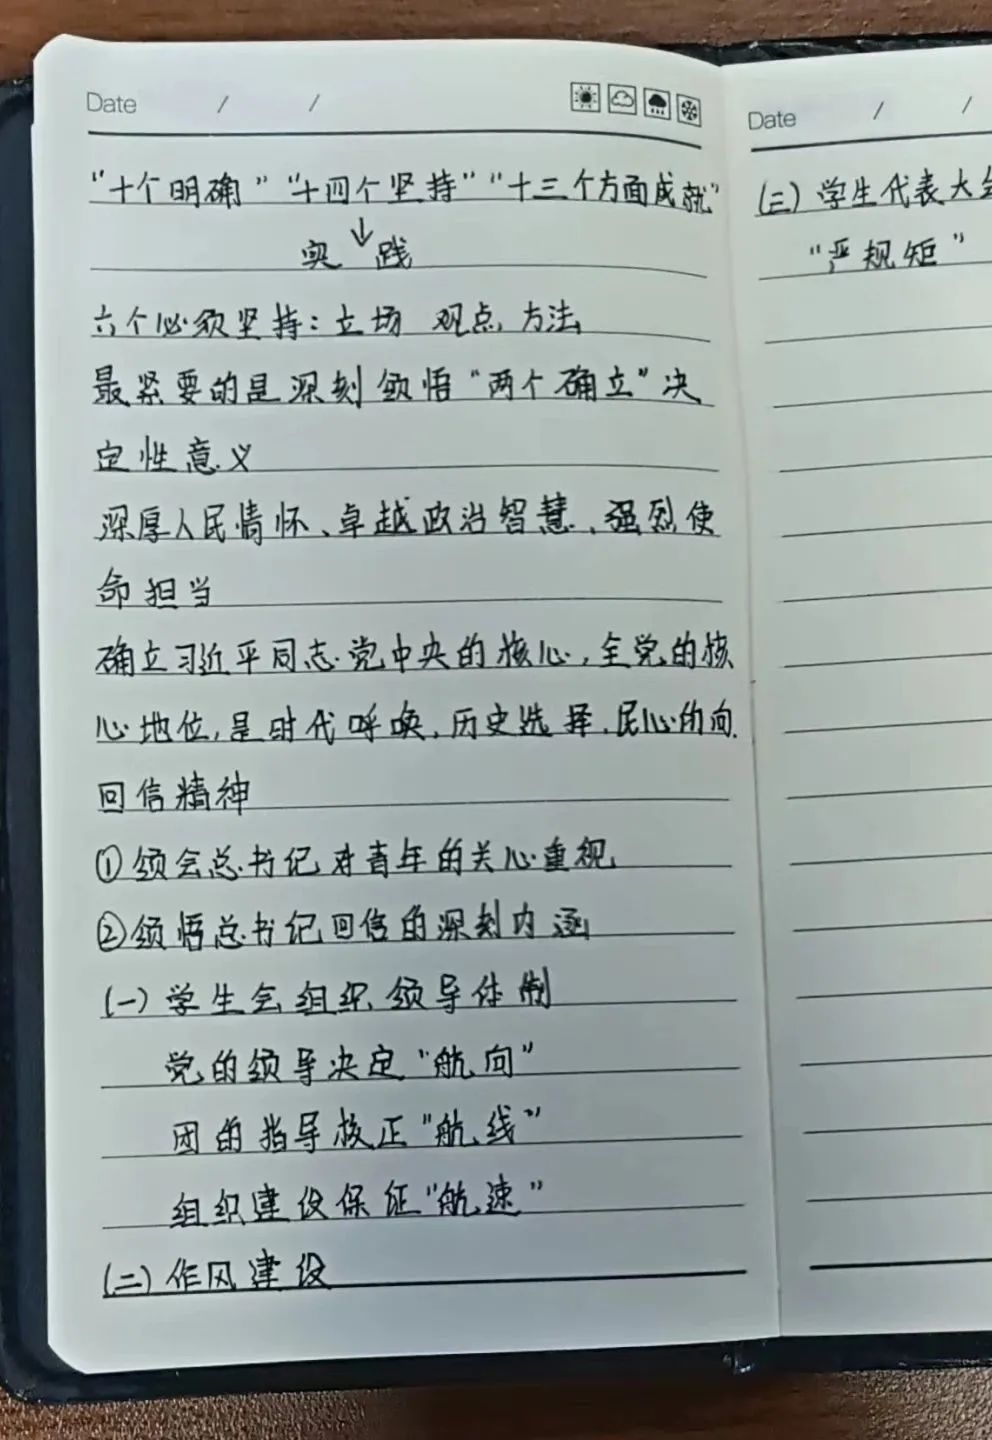 Date / /
"十个明确" "十四个坚持" "十三个方面成就"
↓
实践
六个必须坚持:立场 观点 方法
最紧要的是深刻领悟"两个确立"决
定性意义
深厚人民情怀、卓越政治智慧、强烈使
命担当
确立习近平同志党中央的核心,全党的核
心地位,是时代呼唤,历史选择,民心所向.
回信精神
①领会总书记对青年的关心重视
②领悟总书记回信的深刻内涵
(一)学生会组织领导体制
党的领导决定"航向"
团的指导校正"航线"
组织建设保证"航速"
(二)作风建设
Date / /
(三)学生代表大会
"严规矩"